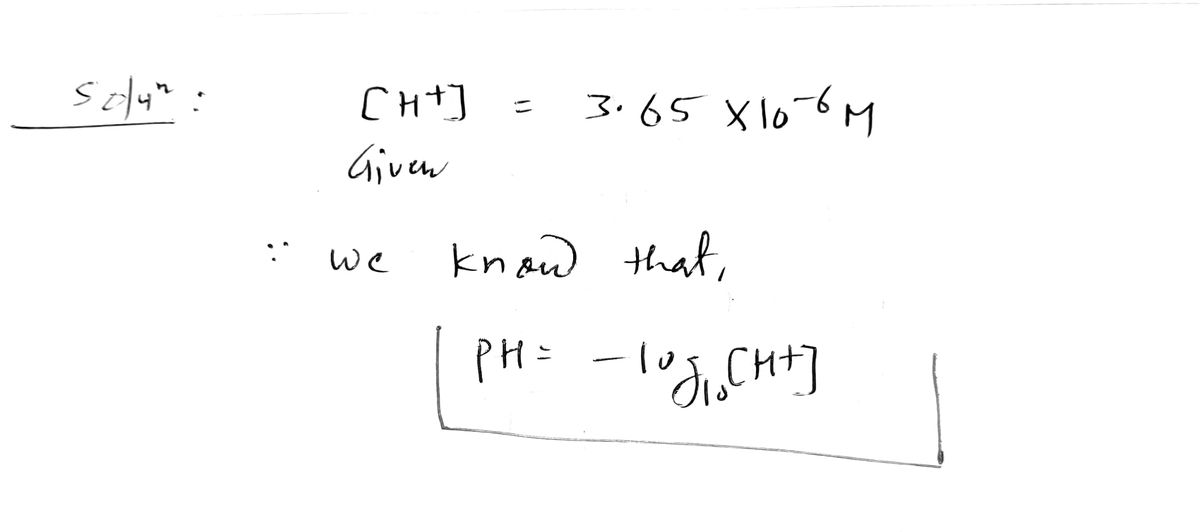 Solyⁿ : [H+] = 3.65 X10⁻⁶ M
Given
∵ we know that,
PH = -log₁₀[H+]